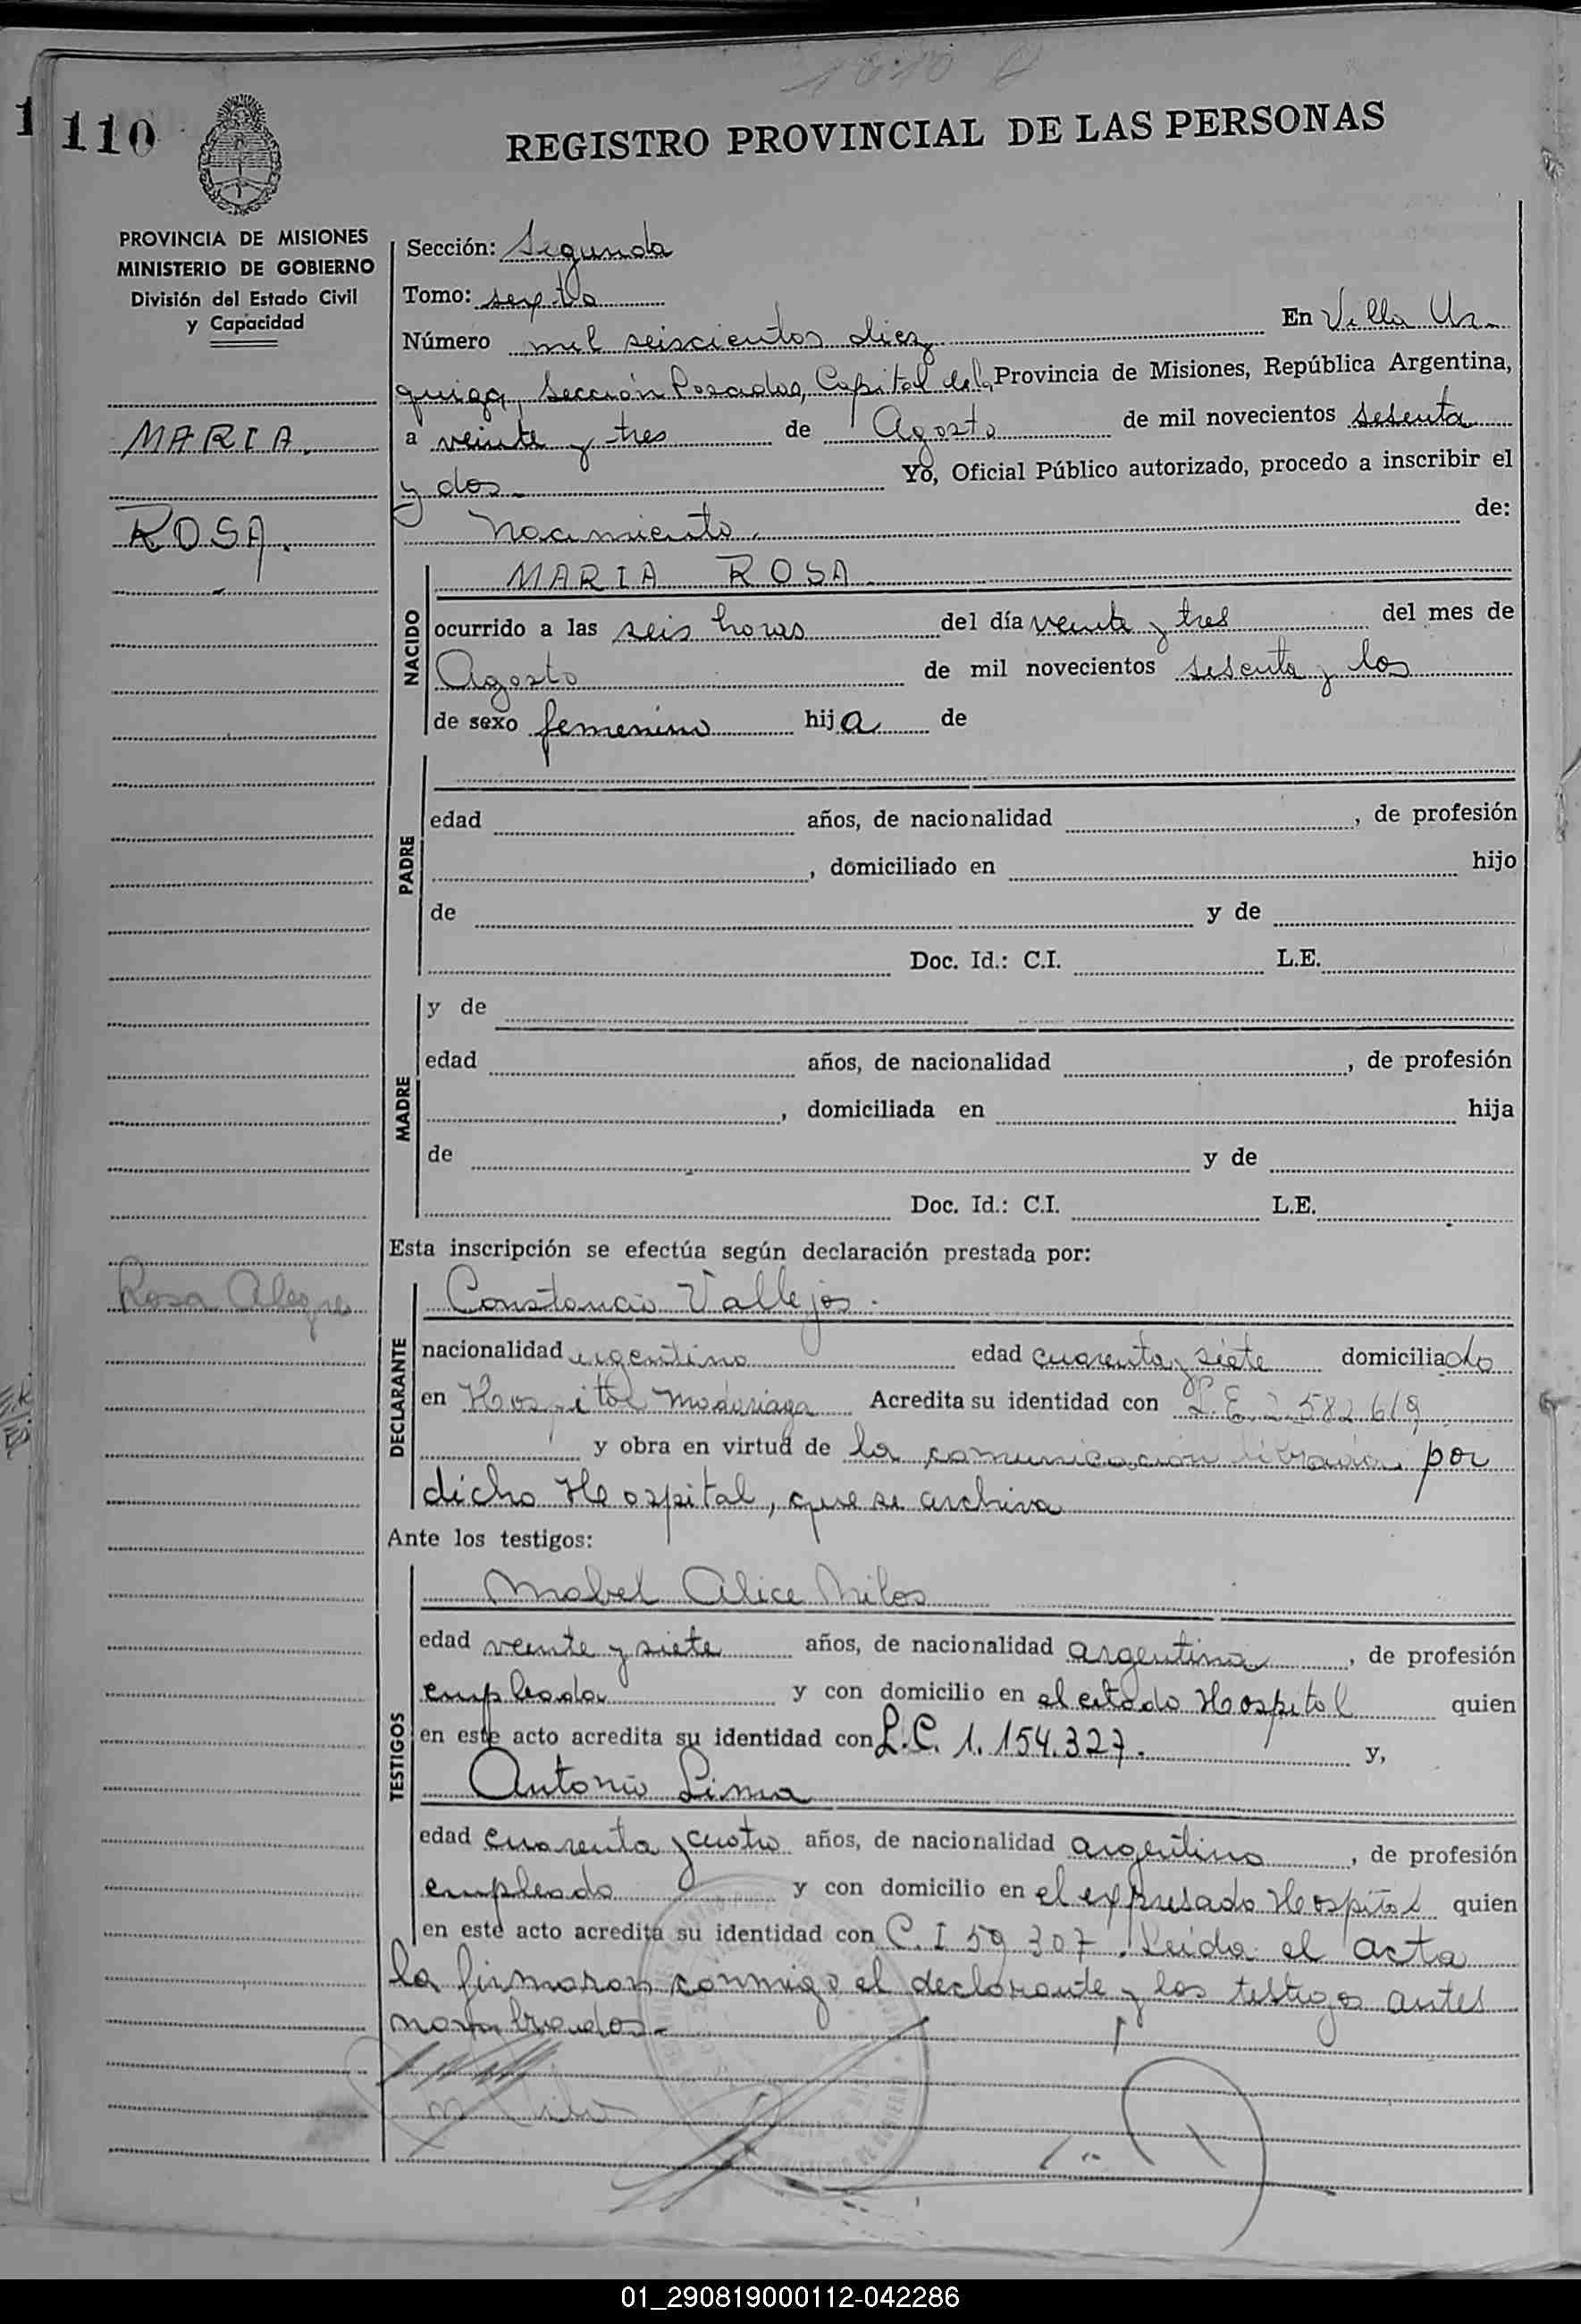 1
110
REGISTRO PROVINCIAL DE LAS PERSONAS
PROVINCIA DE MISIONES
MINISTERIO DE GOBIERNO
División del Estado Civil
y Capacidad
MARIA.
ROSA.
Rosa Alegre
Sección: Segunda
Tomo: sexto
Número mil seiscientos diez En Villa Ur-
quiza, Sección Posadas, Capital de la Provincia de Misiones, República Argentina,
a veinte y tres de Agosto de mil novecientos sesenta
y dos- Yo, Oficial Público autorizado, procedo a inscribir el
Nacimiento, de:
NACIDO
MARIA ROSA
ocurrido a las seis horas del día veinte y tres del mes de
Agosto de mil novecientos sesenta y dos
de sexo femenino hija de
PADRE
edad años, de nacionalidad , de profesión
, domiciliado en hijo
de y de
Doc. Id.: C.I. L.E.
MADRE
y de
edad años, de nacionalidad , de profesión
, domiciliada en hija
de y de
Doc. Id.: C.I. L.E.
Esta inscripción se efectúa según declaración prestada por:
DECLARANTE
Constancio Vallejos.
nacionalidad argentino edad cuarenta y siete domiciliado
en Hospital Madariaga Acredita su identidad con L.E. 2.582.619
y obra en virtud de la comunicación librada por
dicho Hospital, que se archiva
Ante los testigos:
TESTIGOS
Mabel Alice Milos
edad veinte y siete años, de nacionalidad argentina, de profesión
empleada y con domicilio en el citado Hospital quien
en este acto acredita su identidad con L.C. 1.154.327. y,
Antonio Lima
edad cuarenta y cuatro años, de nacionalidad argentino, de profesión
empleado y con domicilio en el expresado Hospital quien
en este acto acredita su identidad con C.I 59 307. Leida el acta
la firmaron conmigo el declarante y los testigos antes
nombrados-
01_290819000112-042286